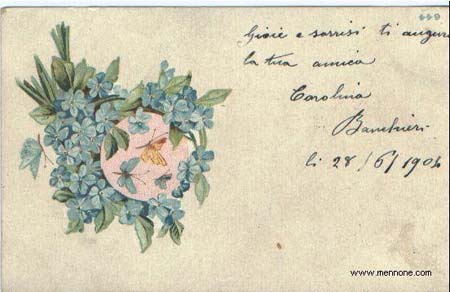 669
Gioie e sorrisi ti augura
la tua amica
Carolina
Banchieri
li 28/6/1904
www.mennone.com